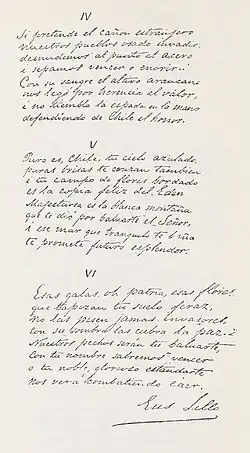 IV
Si pretende el cañon estranjero
nuestros pueblos osado invadir
desnudemos al punto el acero
i sepamos vencer o morir.
Con su sangre el altivo araucano
nos legó por herencia el valor,
i no tiembla la espada en la mano
defendiendo de Chile el honor.
V
Puro es, Chile, tu cielo azulado,
puras brisas te cruzan tambien
i tu campo de flores bordado
es la copia feliz del Eden
Majestuosa es la blanca montaña
que te dió por baluarte el Señor,
i ese mar que tranquilo te baña
te promete futuro esplendor.
VI
Esas galas, oh patria, esas flores
que tapizan tu suelo feraz,
no las pisen jamas invasores,
con su sombra las cubra la paz.
Nuestros pechos serán tu baluarte,
con tu nombre sabremos vencer
o tu noble, glorioso estandarte
nos verá combatiendo caer.
Eus Lillo